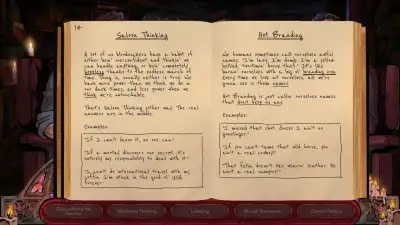 14
Saloon Thinking
A lot of us bloodsuckers have a habit of
either bein' overconfident and thinkin' we
can handle anything, or bein' completely
hopeless thanks to the endless march of
time. Thing is, usually neither is true. We
have more power than we think we do in
our dark times, and less power when we
think we're untouchable.
That's Saloon Thinking either way. The real
answers are in the middle.
Examples:
"If I can't lasso it, no one can."
"If a mortal discovers our secret, it's
entirely my responsibility to deal with it."
"I can't do international travel with my
coffin. I'm stuck in the good ol' USA
forever."
Hot Branding
We humans sometimes call ourselves awful
names. "I'm lazy. I'm dumb. I'm a yellow-
bellied, horse." It's like
burnin' ourselves with a big ol' branding iron.
Every time we look at ourselves, all we're
gonna see is them names.
Hot Branding is just callin' ourselves names
that don't help us any.
Examples:
"I missed that shot. Guess I ain't no
gunslinger."
"If you can't tame that wild horse, you
ain't a real cowboy."
"That fella doesn't like wearin' leather. He
ain't a real vampire!"
Thinking
Labeling
Should Statements
Control Fallacy